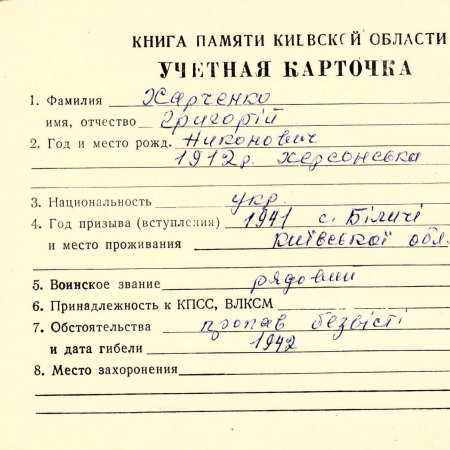 КНИГА ПАМЯТИ КИЕВСКОЙ ОБЛАСТИ
УЧЕТНАЯ КАРТОЧКА
1. Фамилия Харченко
имя, отчество Григорій
2. Год и место рожд. Никонович
1912р. Херсонська
3. Национальность укр.
4. Год призыва (вступления) 1941 с. Біличі
и место проживания Київської обл.
5. Воинское звание рядовий
6. Принадлежность к КПСС, ВЛКСМ
7. Обстоятельства пропав безвісті
и дата гибели 1942
8. Место захоронения